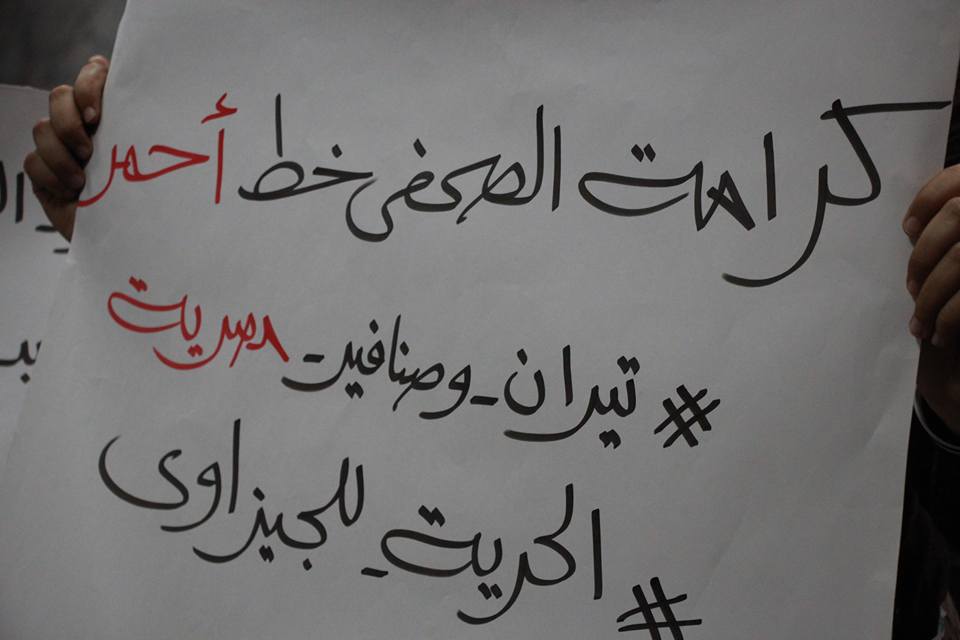 كرامة الصحفى خط أحمر
#تيران_وصنافير_مصرية
#الحرية_للجيزاوى